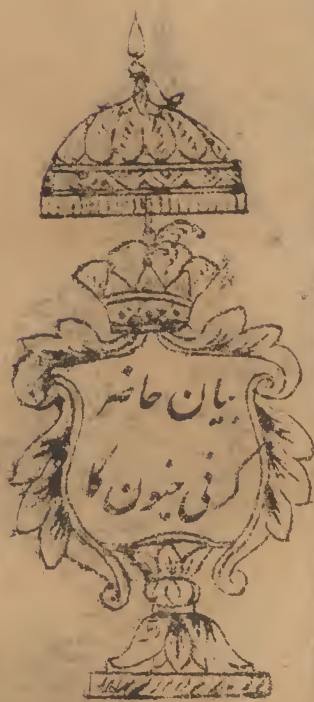 بیان حاضر
کرنی جنیون کا